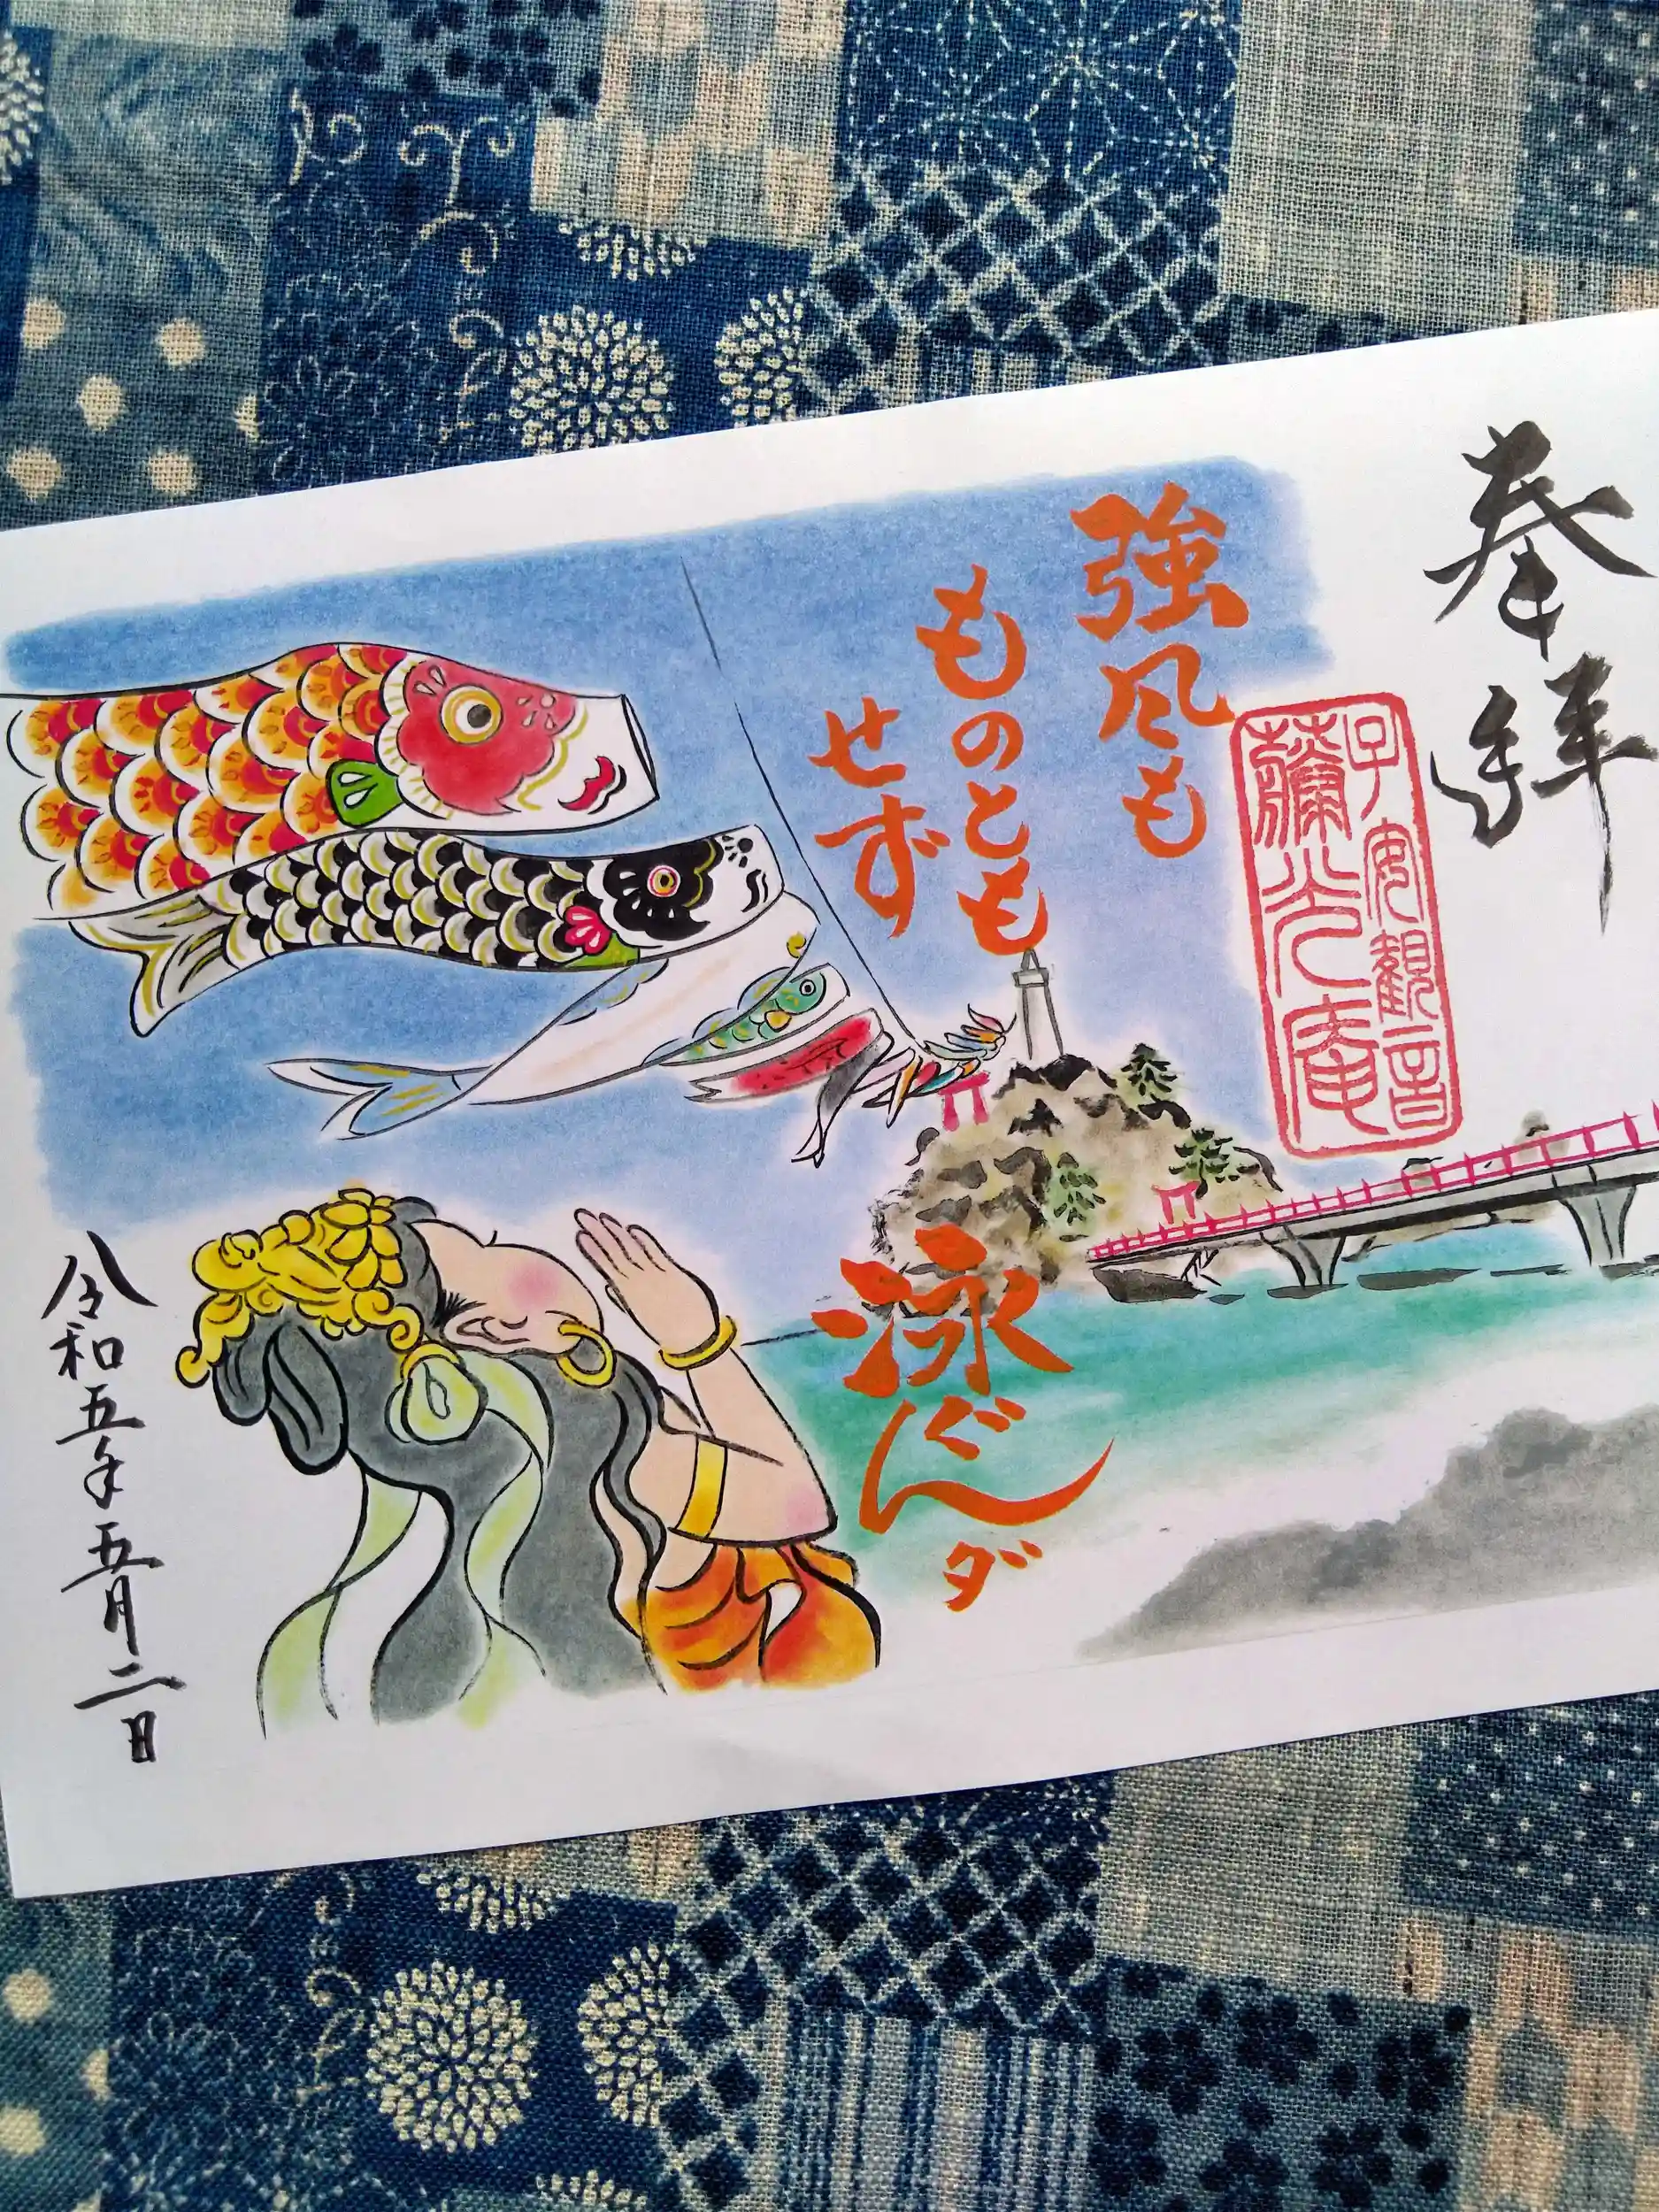 奉拝
子安観音
薩光庵
強風も
ものとも
せず
泳ぐんダ
令和五年五月二日